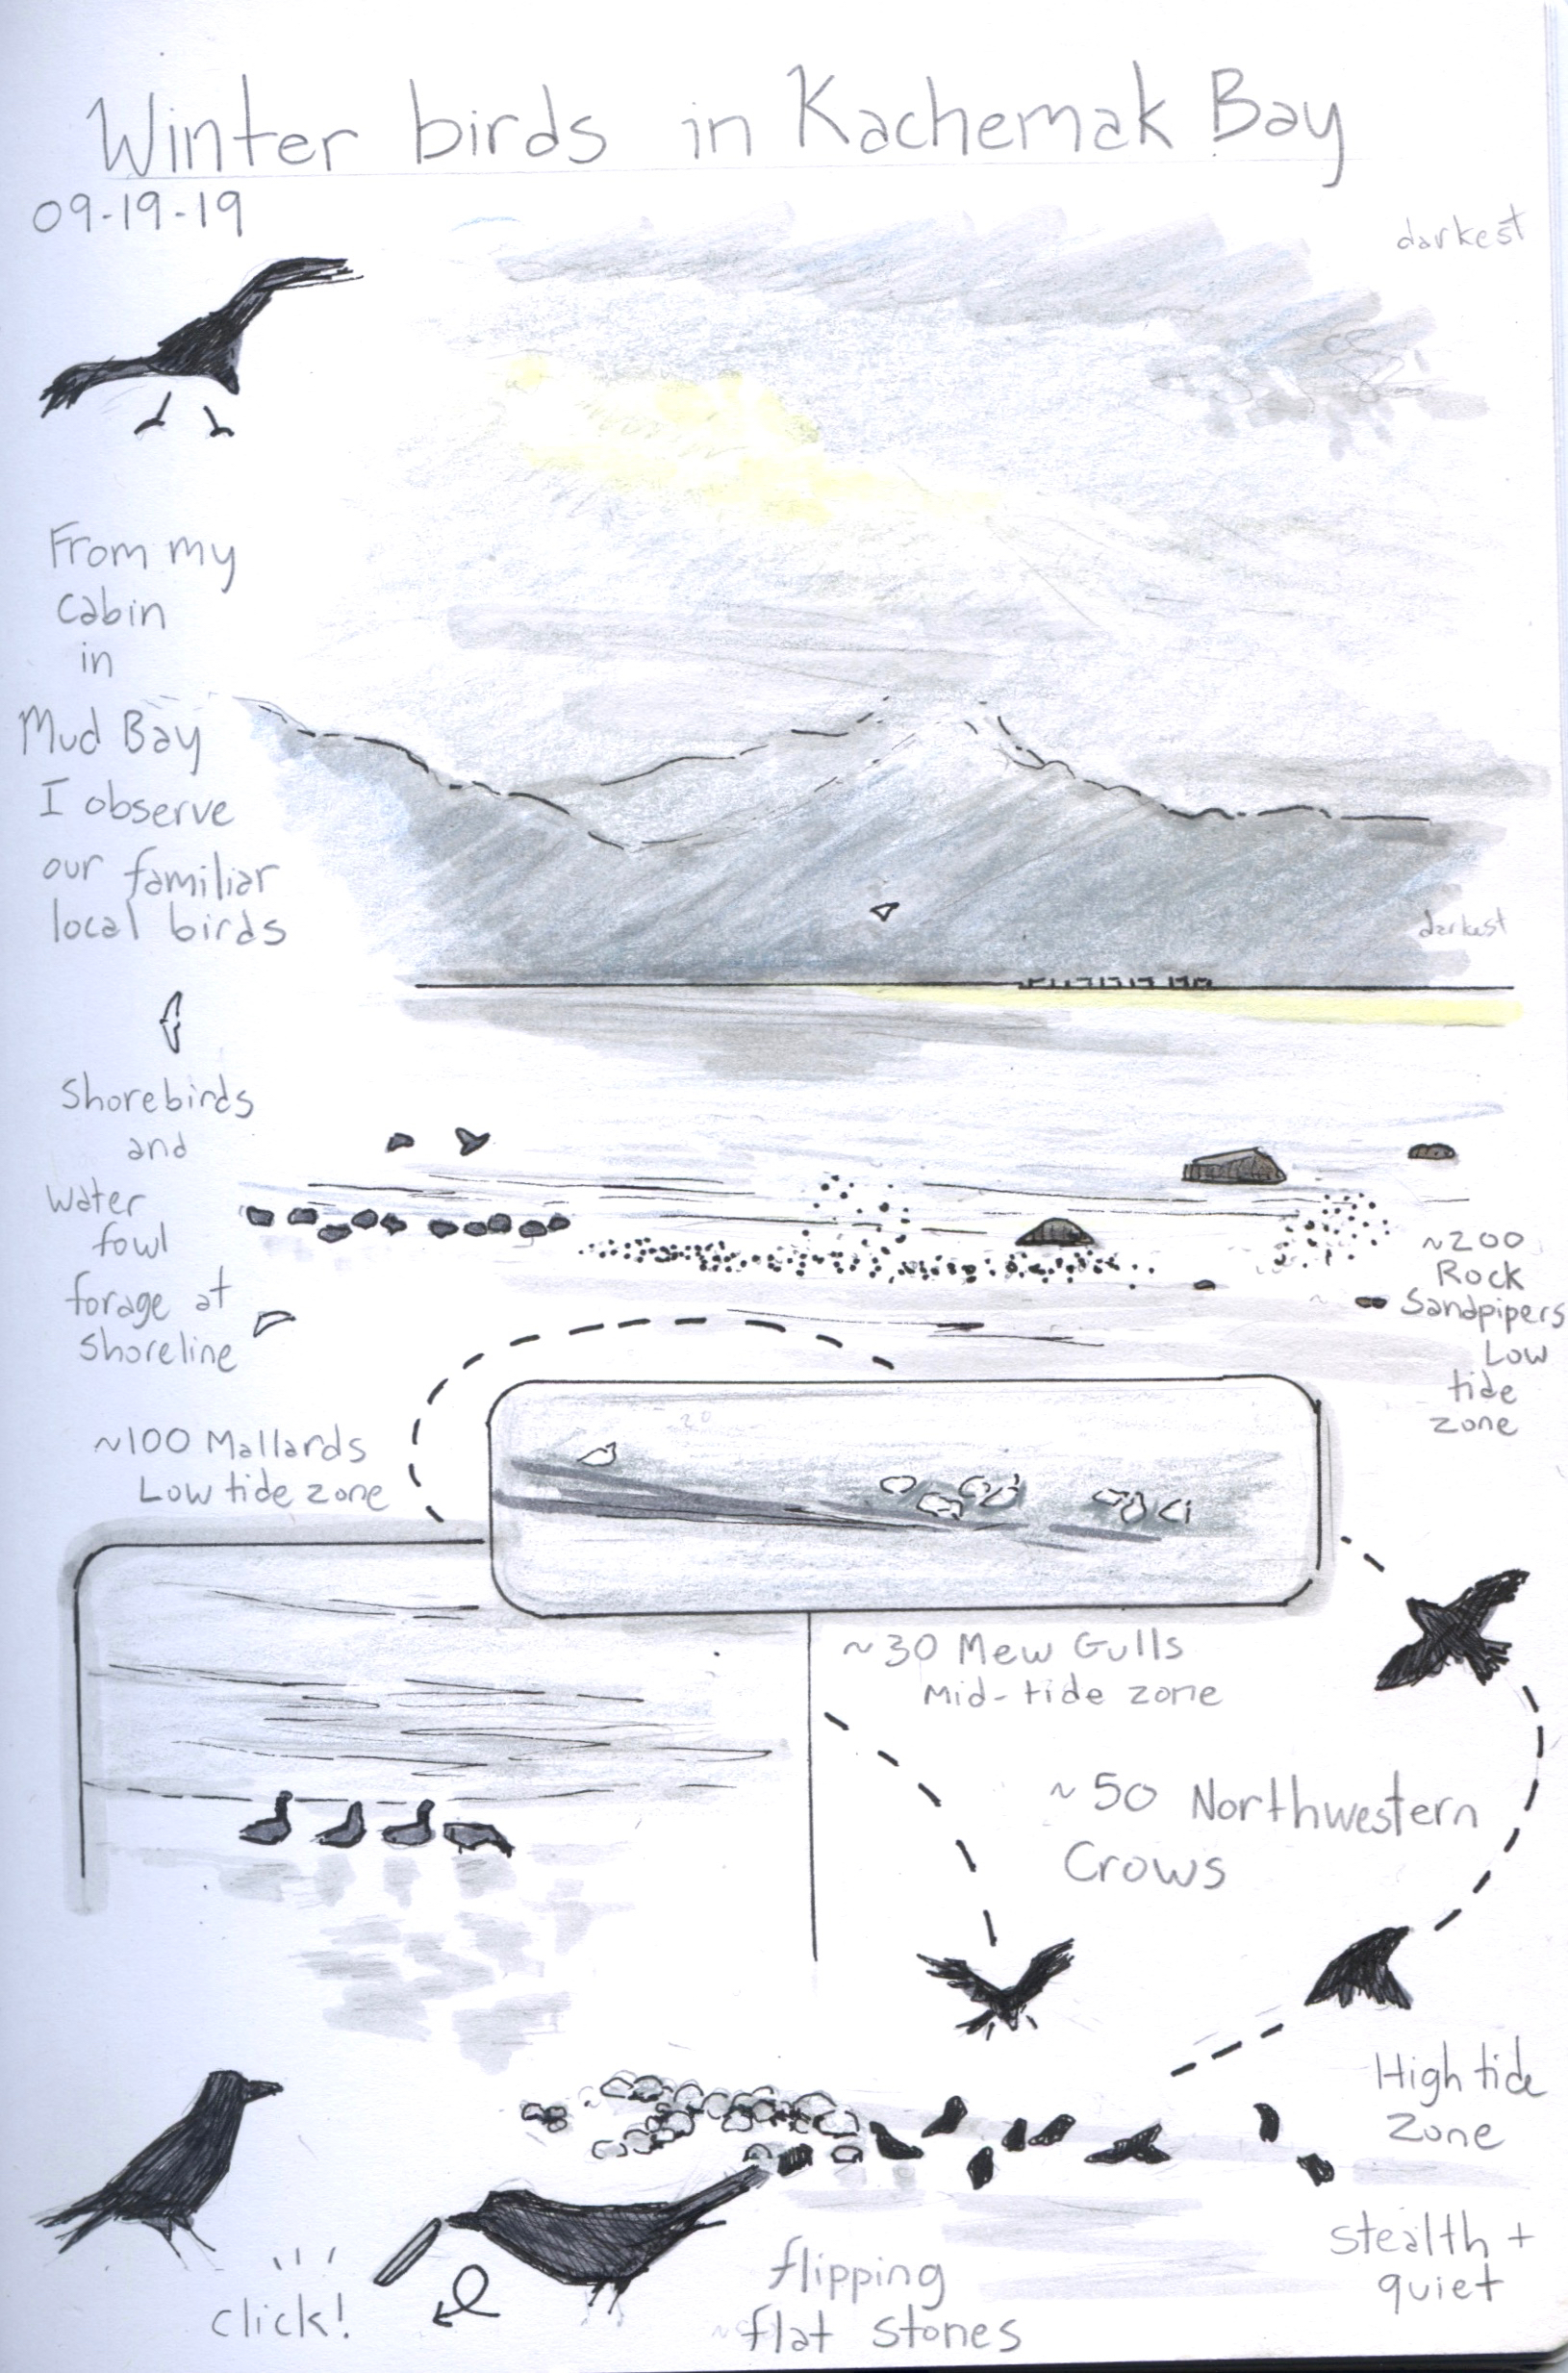 Winter birds in Kachemak Bay
09-19-19
darkest
From my
cabin
in
Mud Bay
I observe
our familiar
local birds
darkest
Shorebirds
and
water
fowl
forage at
shoreline
~200
Rock
Sandpipers
Low
tide
zone
~100 Mallards
Low tide zone
~30 Mew Gulls
Mid-tide zone
~50 Northwestern
Crows
High tide
Zone
stealth +
quiet
click!
flipping
flat stones